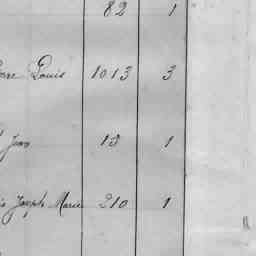 82 1
Louis 1013 3
Jean 13 1
Joseph Marie 210 1